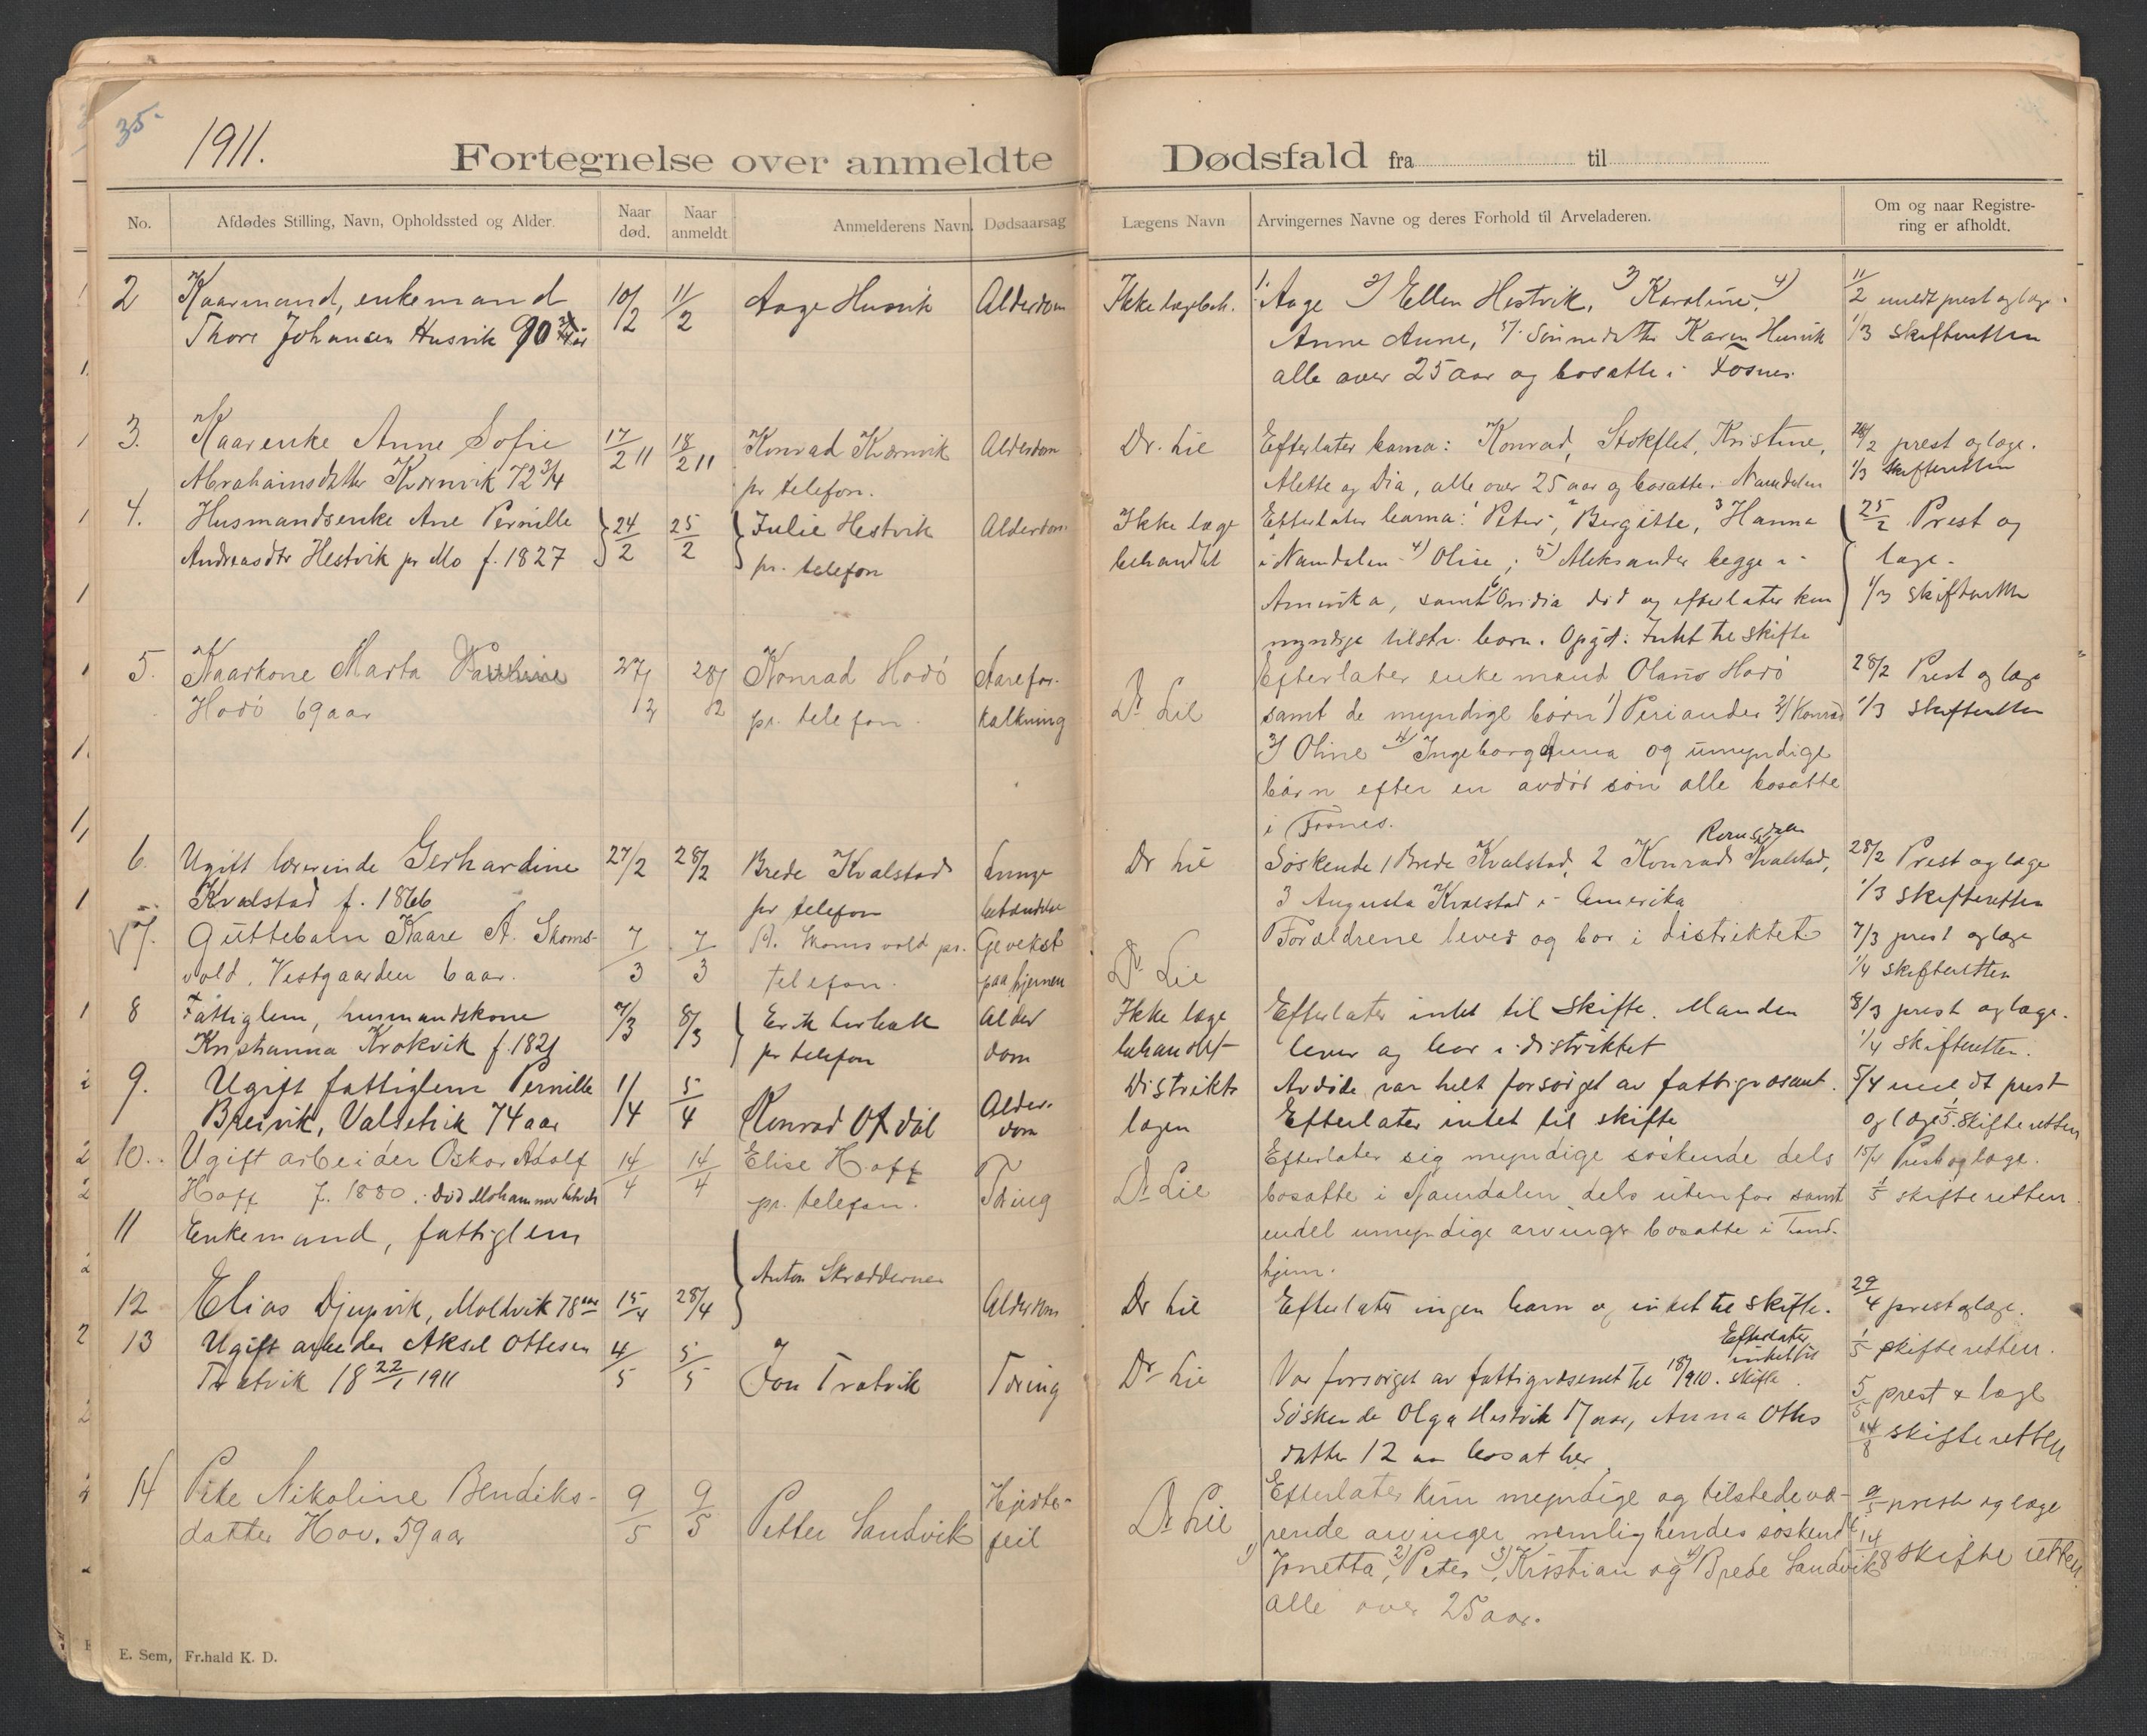 35.
1911.
Fortegnelse over anmeldte Dødsfald fra til
No.
Afdødes Stilling, Navn, Opholdssted og Alder.
Naar død.
Naar anmeldt
Anmelderens Navn.
Dødsaarsag
Lægens Navn
Arvingernes Navne og deres Forhold til Arveladeren.
Om og naar Registre-
ring er afholdt.
2 Kaarmand, enkemand 10/2 11/2 Aage Husvik Alderdom Ikke lægbeh. 1. Aage 2) Ellen Hestvik, 3) Karoline, 4) 11/2 meldt prest og læge.
Thore Johansen Husvik 90 Anne Anne, 5/. Sønnedtter Karen Husvik 1/3 skifteretten
alle over 25 aar og bosatte i Fosnes.
3. Kaarenke Anne Sofie 17/2 11 18/2 11 Konrad Kværnvik Alderdom Dr. Lie Efterlater barna: Konrad, Stokflet, Kristine, 18/2 prest og læge.
Abrahamsdatter Kværnvik 72 3/4 pr telefon. Alette og Dia, alle over 25 aar og bosatte i Namdalen 1/3 skifteretten
4. Husmandsenke Ane Pernille 24/2 25/2 Julie Hestvik Alderdom Ikke læge Efterlater barna: 1 Peter, 2 Bergitte, 3 Hanna 25/2 Prest og
Andreasdtr Hestvik pr Mo f. 1827 pr. telefon behandlet i Namdalen 4) Olise, 5) Aleksander begge i læge.
Amerika, samt 6 Ovidia død og efterlater kun 1/3 skifteretten
myndige tilstr. børn. Opgit: Intet til skifte
5. Kaarkone Marta Pauline 27/2 28/2 Konrad Hodö Aarefor- Dr Lie Efterlater enkemand Olaus Hodö 28/2 Prest og læge
Hodö 69 aar pr. telefon. kalkning samt de myndige børn 1) Periander 2) Konrad 1/3 skifteretten
3) Oline 4) Ingeborg Anna og umyndige
børn efter en avdød søn alle bosatte
i Fosnes.
6. Ugift lærerinde Gerhardine 27/2 28/2 Brede Kvalstad Lunge Dr Lie Søskende 1 Brede Kvalstad, 2 Konrad Kvalstad, Romsdalen 28/2 Prest og læge
Kvalstad f. 1866 pr telefon betændelse 3 Augusta Kvalstad i Amerika 1/3 skifteretten
V 7. Guttebarn Kaare A. Skoms- 7/3 7/3 A. Skomsvold pr. Gevekst Dr Lie Forældrene lever og bor i distriktet 7/3 prest og læge
vold, Vestgaarden 6 aar. telefon. paa hjernen 1/4 skifteretten
8 Fattiglem, husmandskone 7/3 8/3 Erik Alder Ikke læge Efterlater intet til skifte. Manden 8/3 prest og læge.
Kristianna Krokvik f. 1821 pr telefon dom behandlet lever og bor i distriktet 1/4 skifteretten.
9. Ugift fattiglem Pernille 1/4 5/4 Konrad Ofdal Alder- Distrikts Avdøde var helt forsørget av fattigvæsenet. 5/4 meldt prest
Breivik, Valsetvik 74 aar dom lægen Efterlater intet til skifte og læge 1/5. skifteretten
10. Ugift arbeider Oskar Adolf 14/4 14/4 Elise Hoff Tæring Dr Lie Efterlater sig myndige søskende dels 15/4 Prest og læge.
Hoff f. 1880. død pr. telefon. bosatte i Namdalen, dels utenfor samt 1/5 skifteretten.
11 Enkemand, fattiglem endel umyndige arvinger bosatte i Trond-
hjem.
12 Elias Djupvik, Moldvik 78 aar 15/4 28/4 Anton Alderdom Dr Lie Efterlater ingen barn og intet til skifte. 29/4 prest og læge.
13 Ugift arbeider Aksel Ottesen 4/5 5/5 Jon Tratvik Tæring Dr Lie Efterlater intet til 1/5 skifteretten.
Tratvik 18 22/1 1911 Var forsørget av fattigvæsenet til 18/ 1910. skifte. 5/5 prest & læge
Søskende Olga Hestvik 17 aar, Anna Ottes 14/8 skifteretten
datter 12 aar bosat her
14 Pete Nikoline Bendiks- 9/5 9/5 Petter Sandvik Hjerte- Dr Lie Efterlater kun myndige og tilstedevæ- 9/5 prest og læge
datter Hov. 59 aar feil rende arvinger, nemlig hendes søskende 14/8 skifteretten
1) Jonetta, 2) Peter, 3) Kristian og 4) Brede Sandvik
alle over 25 aar.
E. Sem, Fr.hald K. D.